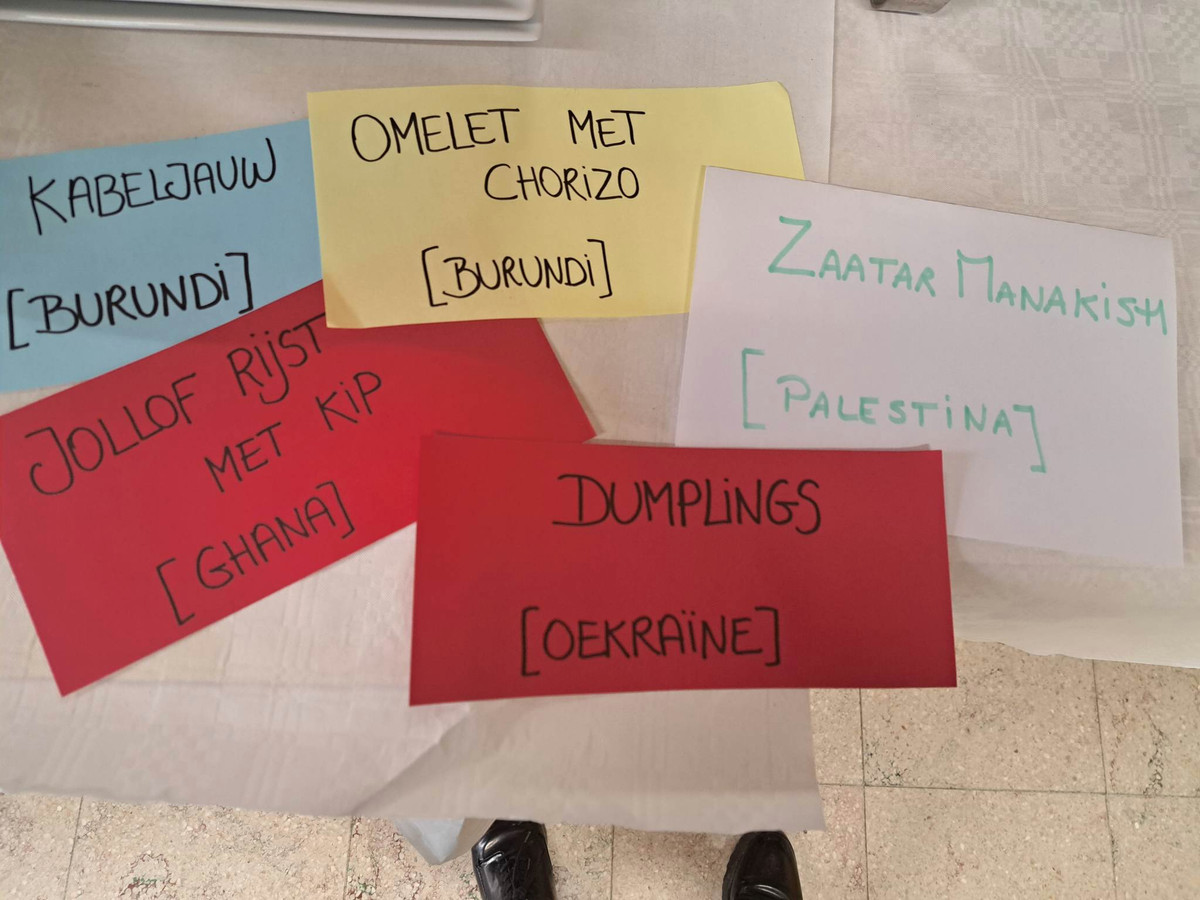 KABELJAUW
[BURUNDi]
OMELET MET
CHORiZO
[BURUNDi]
ZAATAR MANAKiSH
[PALESTiNA]
JOLLOF RijST
MET KiP
[GHANA]
DUMPLiNGS
[OEKRAÏNE]